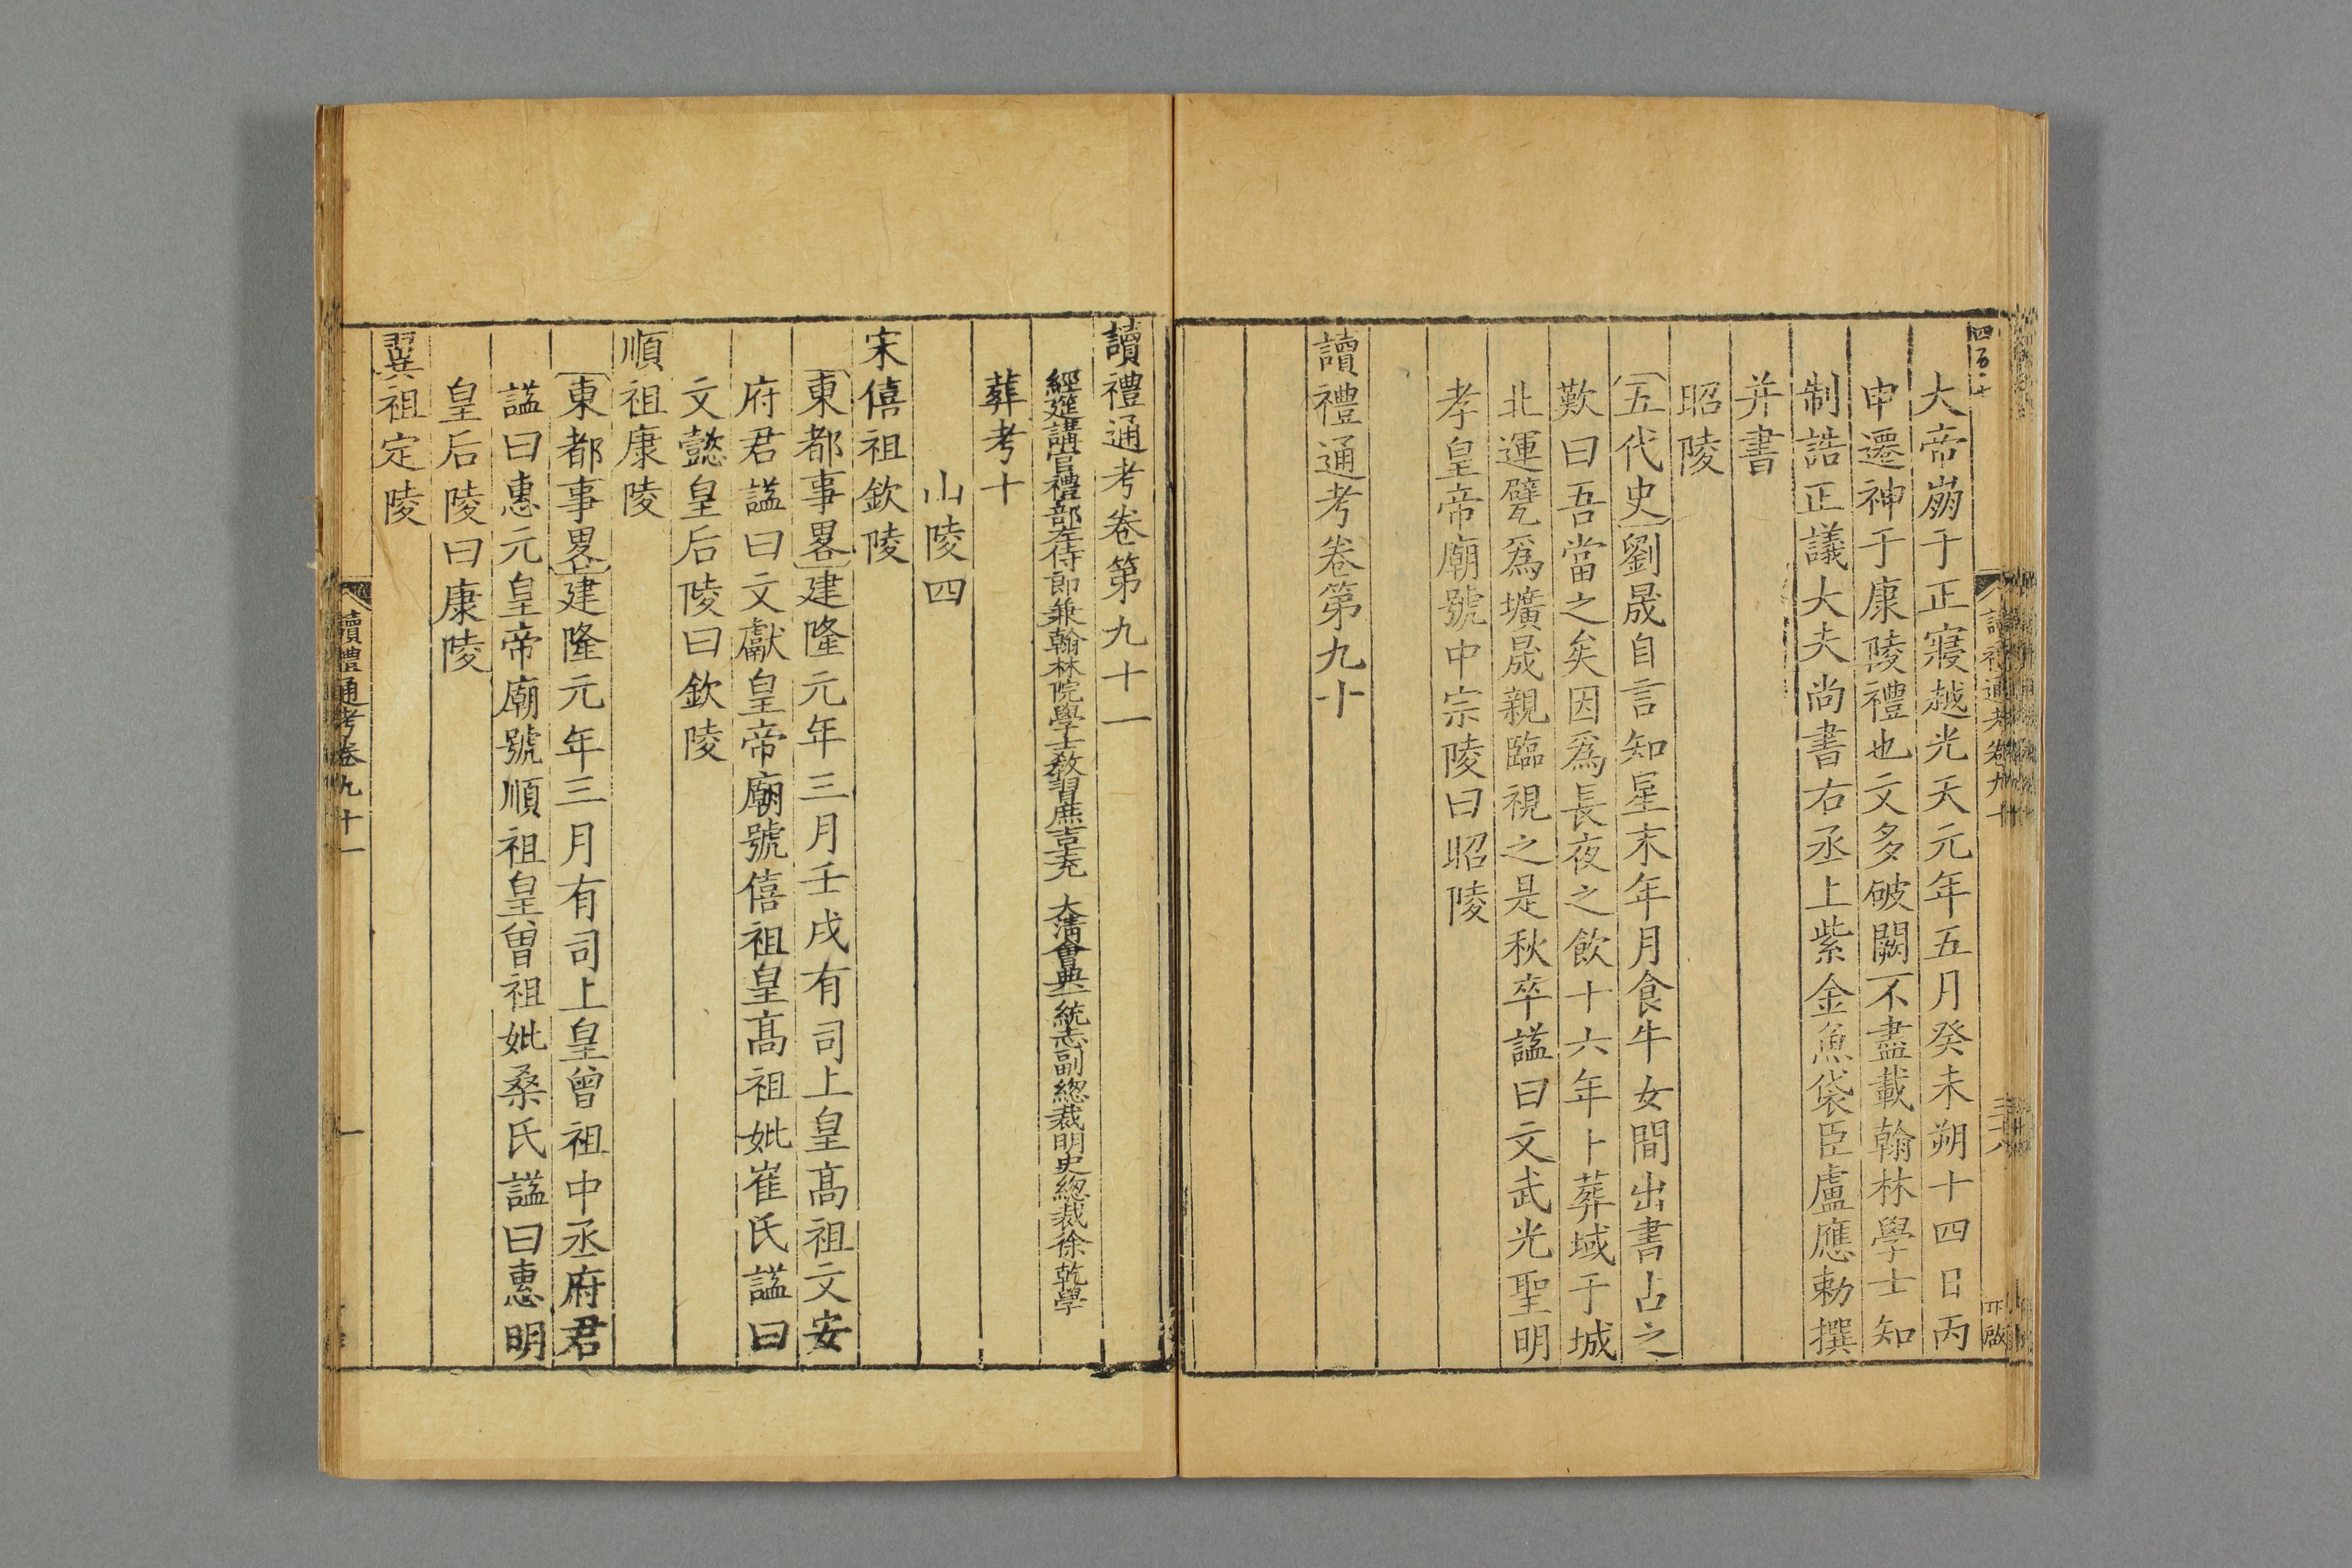 大帝崩于正寢越光天元年五月癸未朔十四日丙
申遷神于康陵禮也文多破闕不盡載翰林學士知
制誥正議大夫尚書右丞上紫金魚袋臣盧應勅撰
并書
昭陵
〔五代史〕劉晟自言知星末年月食牛女間出書占之
歎曰吾當之矣因爲長夜之飲十六年卜葬域于城
北運甓爲壙晟親臨視之是秋卒謚曰文武光聖明
孝皇帝廟號中宗陵曰昭陵
讀禮通考卷第九十
讀禮通考卷第九十一
經筵講官禮部左侍郎兼翰林院學士教習庶吉士充 大清會典一統志副總裁明史總裁徐乾學
葬考十
山陵四
宋僖祖欽陵
〔東都事畧〕建隆元年三月壬戌有司上皇高祖文安
府君謚曰文獻皇帝廟號僖祖皇高祖妣崔氏謚曰
文懿皇后陵曰欽陵
順祖康陵
〔東都事畧〕建隆元年三月有司上皇曾祖中丞府君
謚曰惠元皇帝廟號順祖皇曾祖妣桑氏謚曰惠明
皇后陵曰康陵
翼祖定陵
讀禮通考卷九十一
一